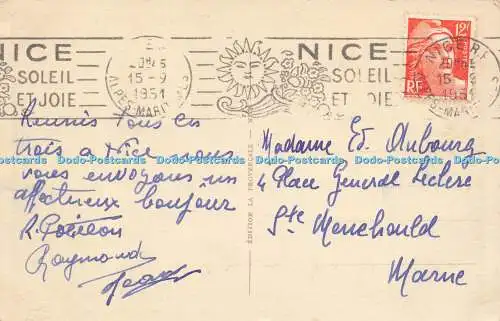 NICE
SOLEIL
ET JOIE
15-9
1951
ALPES-MARITIMES
NICE
SOLEIL
ET JOIE
NICE R.P.
15-9
1951
12F
RF
Réunis tous les
trois à Nice nous
vous envoyons un
affectueux bonjour
Raymonde
EDITION LA PROVENÇALE
Madame Ed. Aubourg
4 Place General Leclerc
Ste Menehould
Marne
Dodo-Postcards Dodo-Postcards Dodo-Postcards Dodo-Postcards Dodo-Postcards Dodo-Postcards